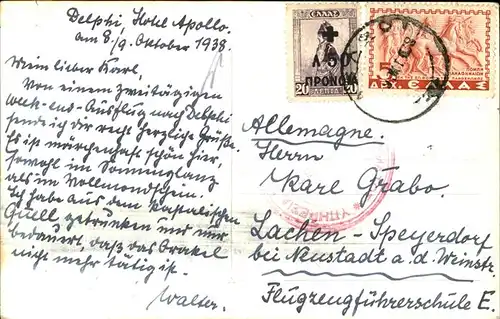 Delphi, Hotel Apollo.
am 8./9. Oktober 1938.
Mein lieber Karl,
Von einem zweitägigen
Week-end-Ausflug nach Delphi
sende ich dir recht herzliche Grüße.
Es ist märchenhaft schön hier,
sowohl im Sonnenglanz
als im Vollmondschein.
Ich habe aus dem Kastalischen
Quell getrunken und nur
bedauert, daß das Orakel
nicht mehr tätig ist.
Walter.
ΕΛΛΑΣ
ΠΡΟΝΟΙΑ
20 ΛΕΠΤΑ 20
5
ΔΡΧ. ΕΛΛΑΣ
Allemagne.
Herrn
Karl Grabo.
Lachen-Speyerdorf
bei Neustadt a. d. Weinstr.
Flugzeugführerschule E.